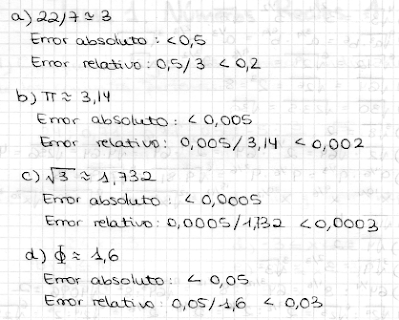 a) 22/7 ≈ 3
Error absoluto: < 0,5
Error relativo: 0,5/3 < 0,2
b) π ≈ 3,14
Error absoluto: < 0,005
Error relativo: 0,005/3,14 < 0,002
c) √3 ≈ 1,732
Error absoluto: < 0,0005
Error relativo: 0,0005/1,732 < 0,0003
d) ɸ ≈ 1,6
Error absoluto: < 0,05
Error relativo: 0,05/1,6 < 0,03